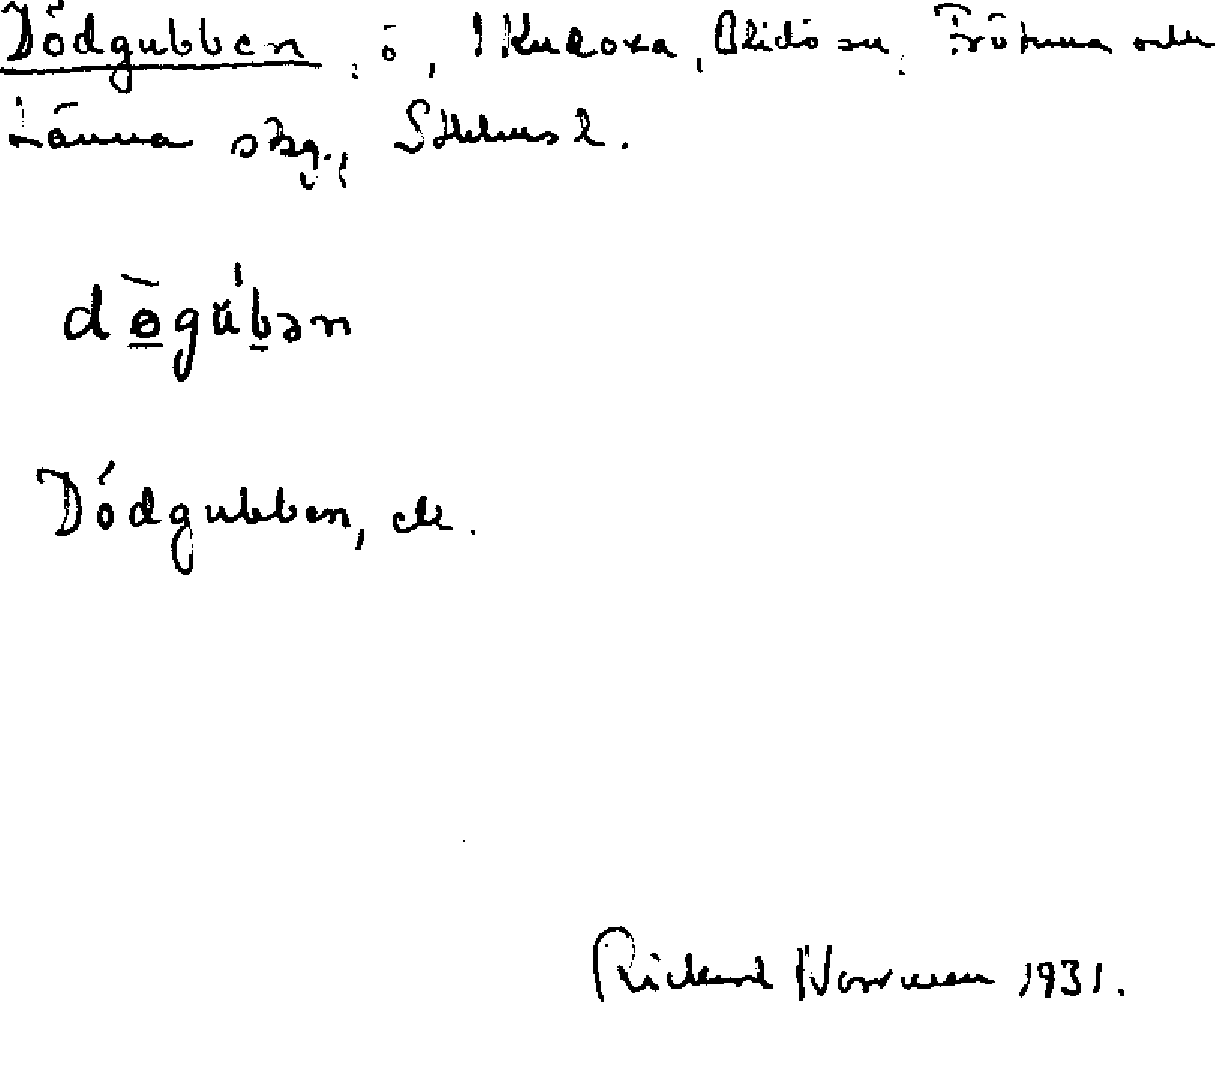 Dödgubben, ö, 1 Kudoxa, Blidö sn, Frötuna och
Länna skg., Sthlms l.
dọ̀gŭ'bən
Dödgubben, ek.
Rickard Norrman 1931.